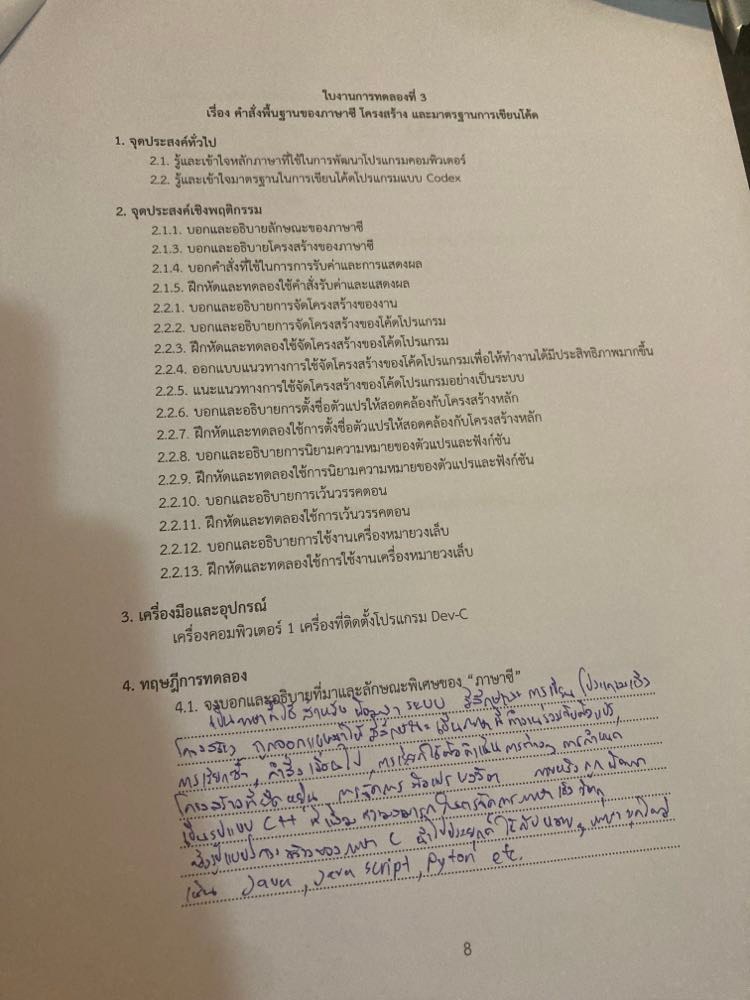 ใบงานการทดลองที่ 3
เรื่อง คำสั่งพื้นฐานของภาษาซี โครงสร้าง และมาตรฐานการเขียนโค้ด
1. จุดประสงค์ทั่วไป
2.1. รู้และเข้าใจหลักภาษาที่ใช้ในการพัฒนาโปรแกรมคอมพิวเตอร์
2.2. รู้และเข้าใจมาตรฐานในการเขียนโค้ดโปรแกรมแบบ Codex
2. จุดประสงค์เชิงพฤติกรรม
2.1.1. บอกและอธิบายลักษณะของภาษาซี
2.1.3. บอกและอธิบายโครงสร้างของภาษาซี
2.1.4. บอกคำสั่งที่ใช้ในการการรับค่าและการแสดงผล
2.1.5. ฝึกหัดและทดลองใช้คำสั่งรับค่าและแสดงผล
2.2.1. บอกและอธิบายการจัดโครงสร้างของงาน
2.2.2. บอกและอธิบายการจัดโครงสร้างของโค้ดโปรแกรม
2.2.3. ฝึกหัดและทดลองใช้จัดโครงสร้างของโค้ดโปรแกรม
2.2.4. ออกแบบแนวทางการใช้จัดโครงสร้างของโค้ดโปรแกรมเพื่อให้ทำงานได้มีประสิทธิภาพมากขึ้น
2.2.5. แนะแนวทางการใช้จัดโครงสร้างของโค้ดโปรแกรมอย่างเป็นระบบ
2.2.6. บอกและอธิบายการตั้งชื่อตัวแปรให้สอดคล้องกับโครงสร้างหลัก
2.2.7. ฝึกหัดและทดลองใช้การตั้งชื่อตัวแปรให้สอดคล้องกับโครงสร้างหลัก
2.2.8. บอกและอธิบายการนิยามความหมายของตัวแปรและฟังก์ชัน
2.2.9. ฝึกหัดและทดลองใช้การนิยามความหมายของตัวแปรและฟังก์ชัน
2.2.10. บอกและอธิบายการเว้นวรรคตอน
2.2.11. ฝึกหัดและทดลองใช้การเว้นวรรคตอน
2.2.12. บอกและอธิบายการใช้งานเครื่องหมายวงเล็บ
2.2.13. ฝึกหัดและทดลองใช้การใช้งานเครื่องหมายวงเล็บ
3. เครื่องมือและอุปกรณ์
เครื่องคอมพิวเตอร์ 1 เครื่องที่ติดตั้งโปรแกรม Dev-C
4. ทฤษฎีการทดลอง
4.1. จงบอกและอธิบายที่มาและลักษณะพิเศษของ "ภาษาซี"
เป็นภาษาที่ใช้ สำหรับ พัฒนา ระบบ มีลักษณะ การเขียน โปรแกรมเชิง
โครงสร้าง ถูกออกแบบมาให้
การเรียกซ้ำ, คำสั่ง เงื่อนไข, การกำหนด
โครงสร้างที่ยืดหยุ่น การจัดการ ภายหลัง ถูก พัฒนา
เป็นรูปแบบ C++ ที่เพิ่ม ความสามารถ ในการจัดการ ภาษา เชิง วัตถุ
ซึ่งรูปแบบโครงสร้างของ ภาษา C นำไปประยุกต์ ใช้กับหลาย ๆ ภาษา ยุคใหม่
เช่น Java, Java script, Pyton etc.
8